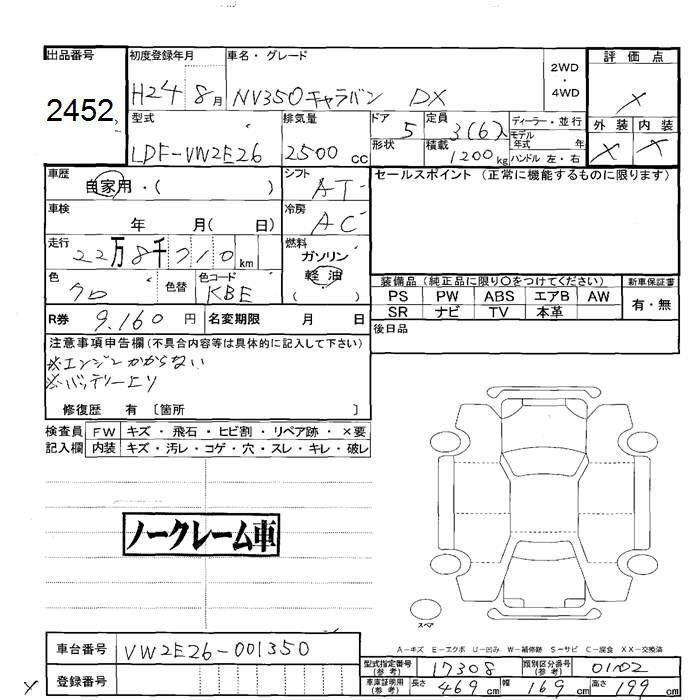 出品番号 初度登録年月 車名・グレード 2WD・4WD 評価点
2452 H24 8月 NV350キャラバン DX ×
型式 排気量 ドア 定員 ディーラー・並行 外装 内装
LDF-VW2E26 2500cc 5 3(6)人 モデル年式 年 × ×
形状 積載 1200kg ハンドル 左・右
車歴 自家用・( ) シフト AT セールスポイント (正常に機能するものに限ります)
車検 年 月(日) 冷房 AC
走行 22万8千210km 燃料 ガソリン
軽油
( )
色 クロ 色替 色コード KBE
装備品(純正品に限り〇をつけてください) 新車保証書
PS PW ABS エアB AW 有・無
SR ナビ TV 本革
R券 9.160円 名変期限 月 日 後日品
注意事項申告欄(不具合内容等は具体的に記入して下さい)
※エンジンかからない
※バッテリー
修復歴 有 [箇所 ]
検査員 FW キズ・飛石・ヒビ割・リペア跡・×要
記入欄 内装 キズ・汚レ・コゲ・穴・スレ・キレ・破レ
ノークレーム車
スペア
A−キズ E−エクボ U−凹み W−補修跡 S−サビ C−腐食 XX−交換済
車台番号 VW2E26-001350
登録番号
型式指定番号(参考) 17308 類別区分番号(参考) 0102
車庫証明用(参考) 長さ 469cm 幅 169cm 高さ 199cm